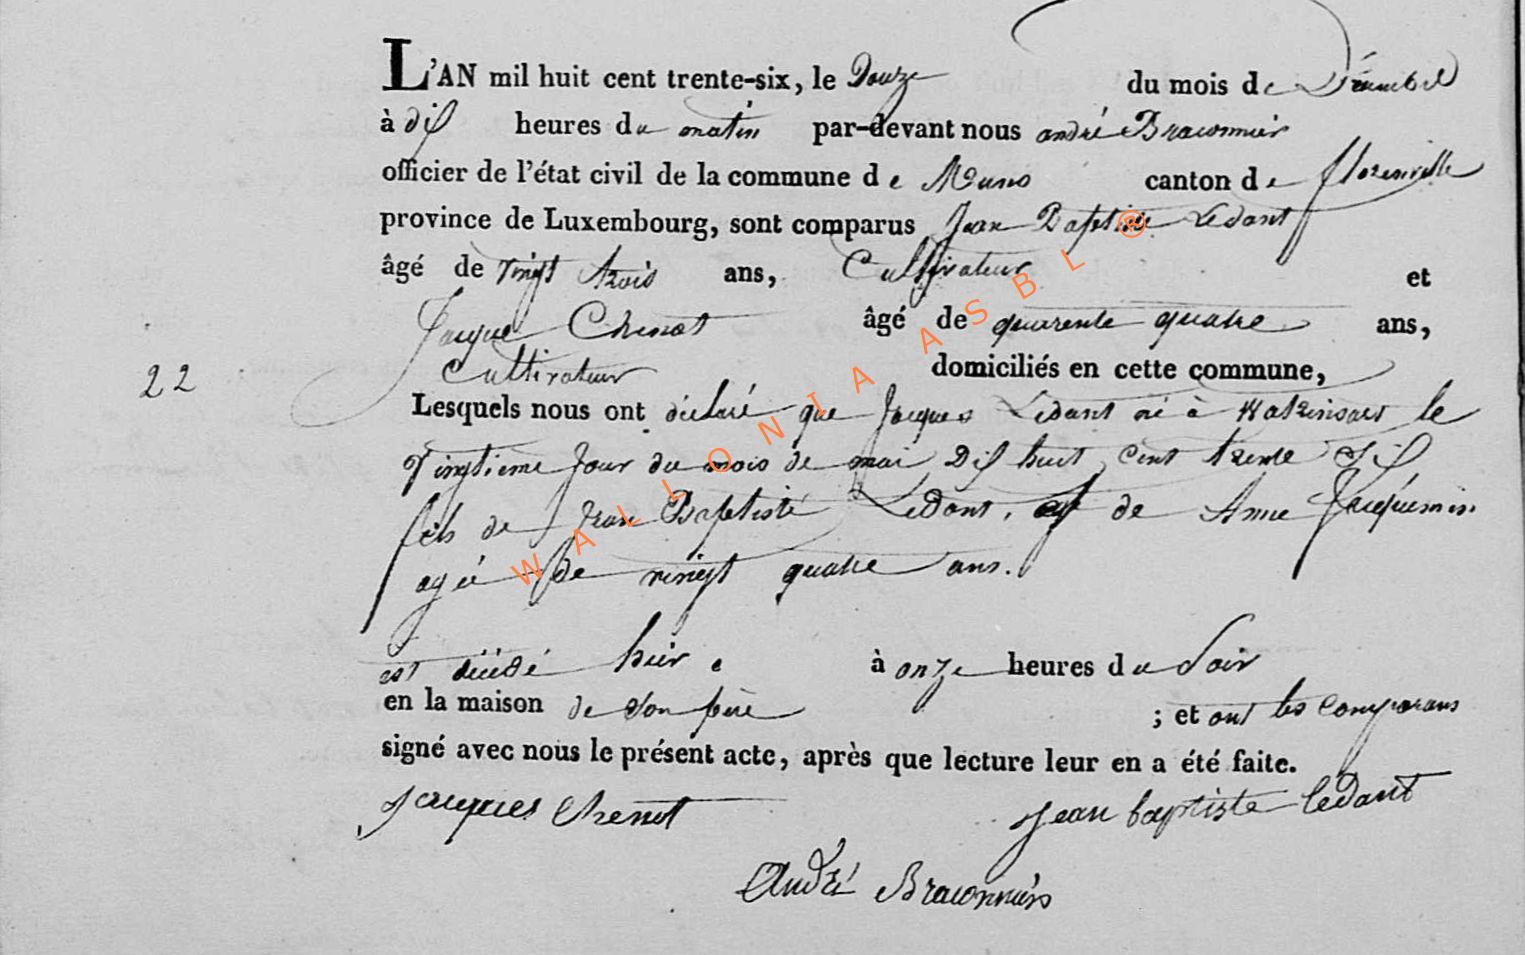 L'AN mil huit cent trente-six, le Douze du mois de Décembre
à dix heures du matin par-devant nous andré Braconnier
officier de l'état civil de la commune de Muno canton de florenville
province de Luxembourg, sont comparus Jean Baptiste Ledant
âgé de vingt trois ans, Cultivateur et
Jacque Chenot âgé de quarente quatre ans,
22
Cultivateur domiciliés en cette commune,
Lesquels nous ont déclaré que Jacques Ledant né à Watrinsart le
vingtieme jour du mois de mai Dix huit cent trente Six
fils de Jean Baptiste Ledant, et de Anne Jacquemin
agée de vingt quatre ans.
est décédé hier à onze heures du Soir
en la maison de Son père ; et ont les comparans
signé avec nous le présent acte, après que lecture leur en a été faite.
Jacques Chenot Jean baptiste ledant
André Braconnier
WALLONIA ASBL ®